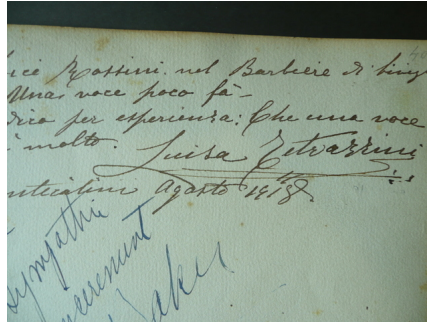 Rossini nel Barbiere di
Una voce poco fà -
dico per esperienza: Che una voce
molto. Luisa Tetrazzini
Agosto 1918
sympathie